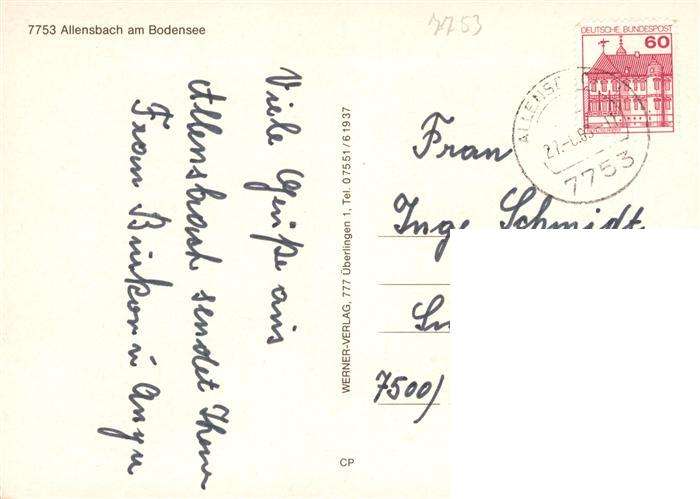 7753 Allensbach am Bodensee
7753
DEUTSCHE BUNDESPOST
60
7753
Viele Grüße aus
Allensbach sendet Ihnen
Frau
WERNER-VERLAG, 777 Überlingen 1, Tel. 07551/61937
CP
Frau
Inge Schmidt
7500/